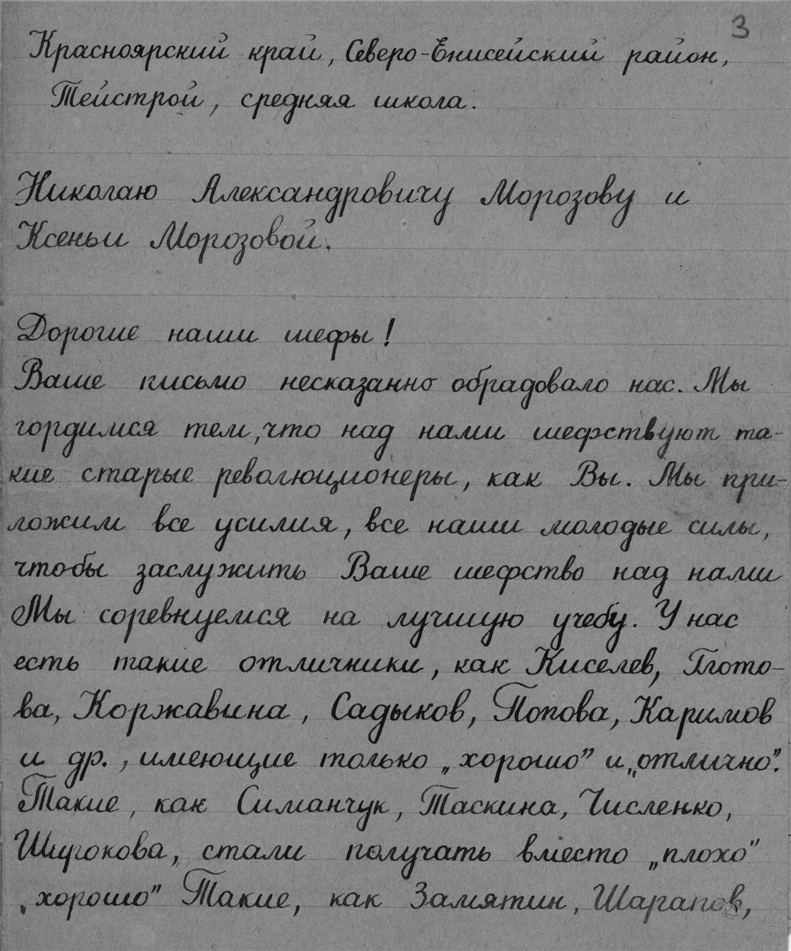 3
Красноярский край, Северо-Енисейский район,
Тейстрой, средняя школа.
Николаю Александровичу Морозову и
Ксеньи Морозовой.
Дорогие наши шефы!
Ваше письмо несказанно обрадовало нас. Мы
гордимся тем, что над нами шефствуют та-
кие старые революционеры, как Вы. Мы при-
ложим все усилия, все наши молодые силы,
чтобы заслужить Ваше шефство над нами
Мы соревнуемся на лучшую учебу. У нас
есть такие отличники, как Киселев, Глото-
ва, Коржавина, Садыков, Попова, Каримов
и др., имеющие только „хорошо" и „отлично".
Такие, как Симанчук, Таскина, Численко,
Широкова, стали получать вместо „плохо"
„хорошо" Такие, как Замятин, Шарапов,